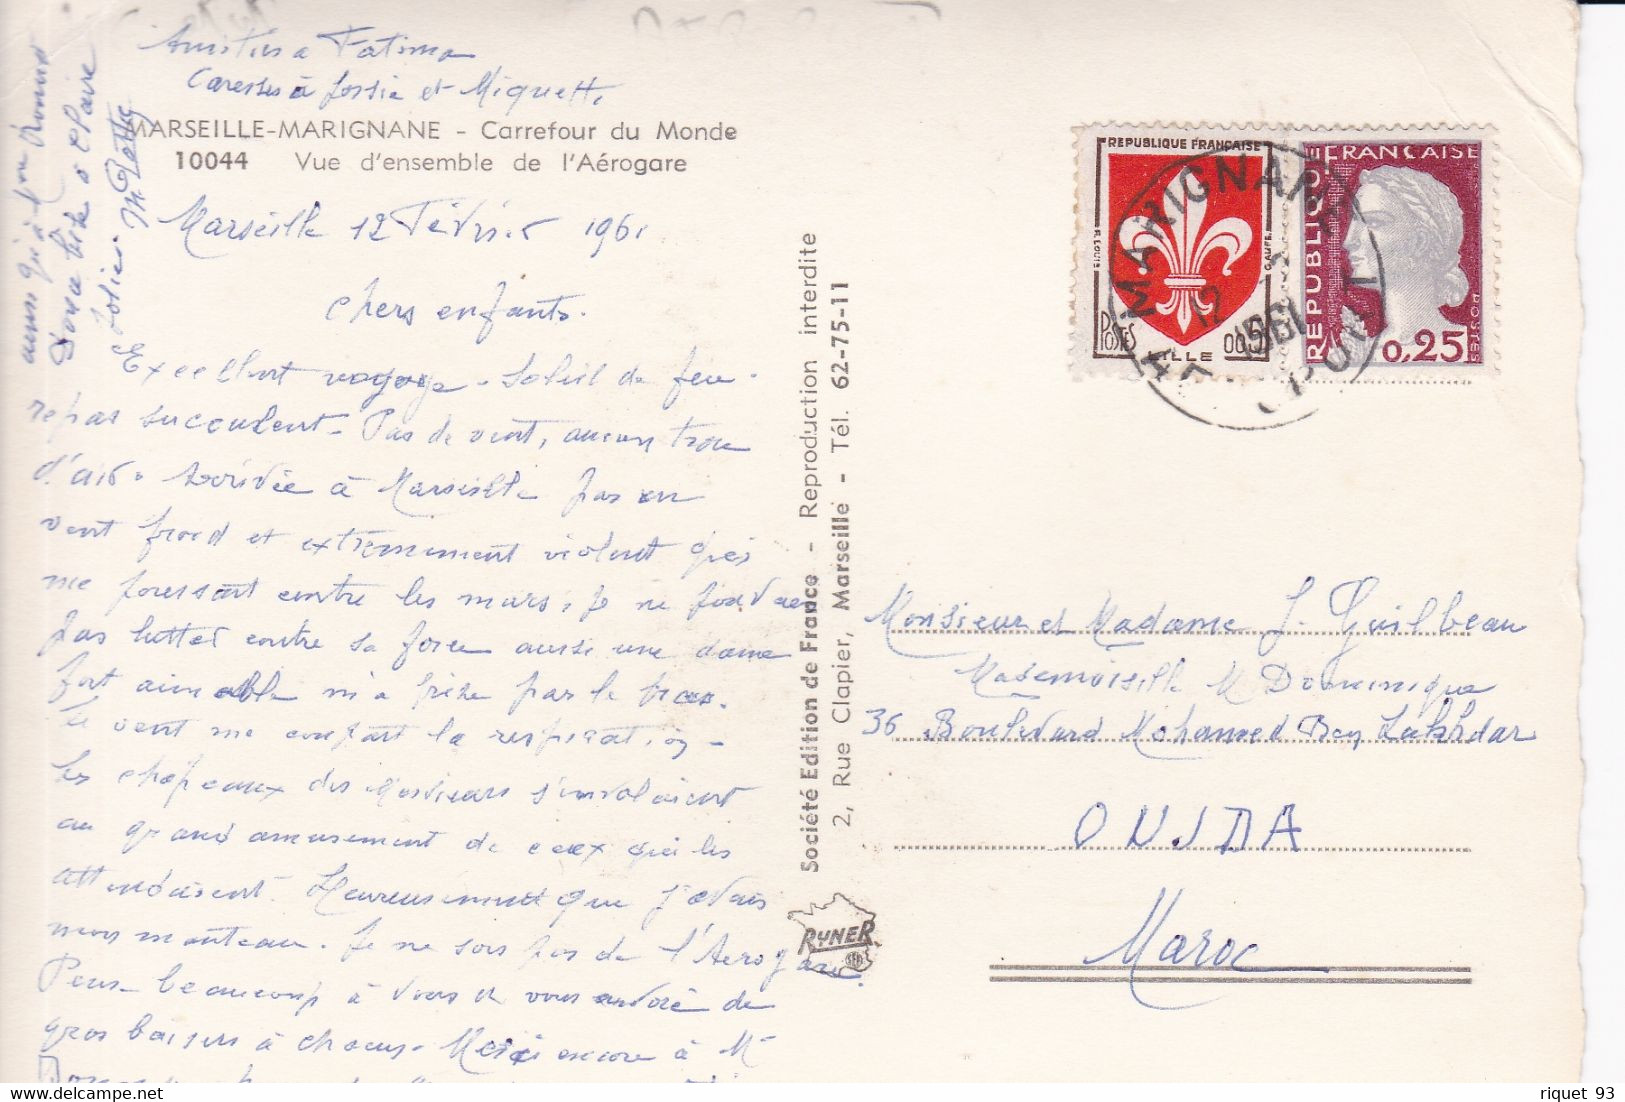 Amitiés à Fatima
Caresses à et Miquette
MARSEILLE-MARIGNANE - Carrefour du Monde
10044 Vue d'ensemble de l'Aérogare
Marseille 12 Février 1961
Chers enfants.
Excellent voyage - Soleil de feu -
repas succulent - Pas de vent, aucun trou
d'air. Arrivée à Marseille par un
vent froid et extrêmement violent qui
me poussait contre les murs, je ne pouvais
pas lutter contre sa force aussi une dame
fort aimable m'a prise par le bras.
Le vent me coupait la respiration -
Les chapeaux des Messieurs s'envolaient
au grand amusement de ceux qui les
attendaient. Heureusement que j'avais
mon manteau. Je ne sors pas de l'Aérogare.
Pense beaucoup à vous et vous envoie de
gros baisers à chacun - Merci encore à Mr
aussi qu'à
à Claire
Société Edition de France - Reproduction interdite
2, Rue Clapier, Marseille - Tél. 62-75-11
RYNER
SEF
REPUBLIQUE FRANÇAISE
POSTES
LILLE
0,05
REPUBLIQUE FRANÇAISE
0,25
POSTES
MARIGNANE
12
1961
AEROPORT
Monsieur et Madame J. Guilbeau
Mademoiselle M Dominique
36 Boulevard Mohammed Ben Lakhdar
OUJDA
Maroc
riquet 93